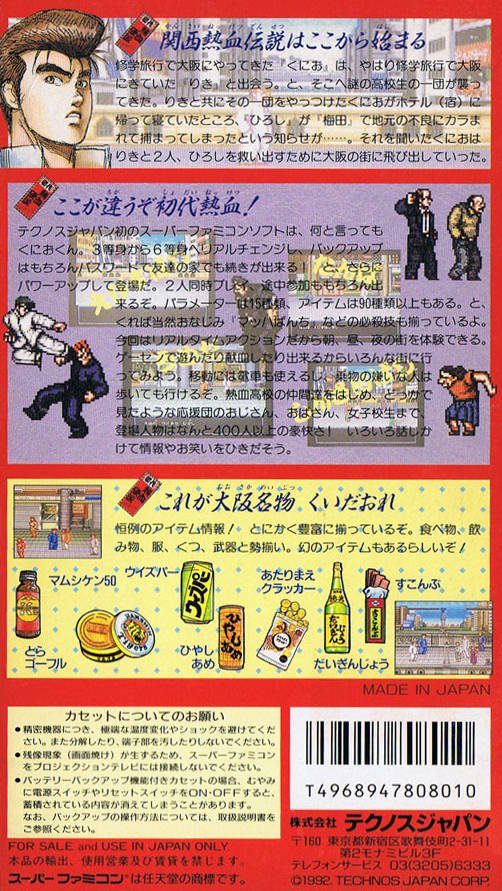 関西熱血伝説はここから始まる
修学旅行で大阪にやってきた『くにお』は、やはり修学旅行で大阪
にきていた『りき』と出会う。と、そこへ謎の高校生の一団が襲っ
てきた。りきと共にその一団をやっつけたくにおがホテル(宿)に
帰って寝ていたところ、『ひろし』が『梅田』で地元の不良にカラま
れて捕まってしまったという知らせが……。それを聞いたくにおは
りきと2人、ひろしを救い出すために大阪の街に飛び出していった。
ここが違うぞ初代熱血!
テクノスジャパン初のスーパーファミコンソフトは、何と言っても
くにおくん。3等身から6等身へリアルチェンジし、バックアップ
はもちろんパスワードで友達の家でも続きが出来る!と、さらに
パワーアップして登場だ。2人同時プレイ、途中参加ももちろん出
来るぞ。パラメーターは15種類、アイテムは90種類以上もある。と、
くれば当然おなじみ『マッハぱんち』などの必殺技も揃っているよ。
今回はリアルタイムアクションだから朝、昼、夜の街を体験できる。
ゲーセンで遊んだり献血したり出来るからいろんな街に行
ってみよう。移動には電車も使えるし、乗物の嫌いな人は
歩いても行けるぞ。熱血高校の仲間達をはじめ、どっかで
見たような応援団のおじさん、おばさん、女子校生まで、
登場人物はなんと400人以上の豪快さ!いろいろ話しか
けて情報やお笑いをひきだそう。
これが大阪名物 くいだおれ
恒例のアイテム情報! とにかく豊富に揃っているぞ。食べ物、飲
み物、服、くつ、武器と勢揃い。幻のアイテムもあるらしいぞ!
マムシケン50
ウイズパー
あたりまえ
クラッカー
すこんぶ
とら
ゴーフル
ひやし
あめ
だいぎんじょう
MADE IN JAPAN
カセットについてのお願い
●精密機器につき、極端な温度変化やショックを避けてくだ
さい。また分解したり、端子部を汚したりしないでください。
●残像現象(画面焼け)が生ずるため、スーパーファミコン
をプロジェクションテレビには接続しないでください。
●バッテリーバックアップ機能付きカセットの場合、むやみ
に電源スイッチやリセットスイッチをON・OFFすると、
蓄積されている内容が消えてしまうことがあります。
なお、バックアップの操作方法については、取扱説明書を
ご参照ください。
FOR SALE and USE IN JAPAN ONLY.
本品の輸出、使用営業及び賃貸を禁じます。
スーパーファミコンは任天堂の商標です。
T4968947808010
株式会社 テクノスジャパン
〒160 東京都新宿区歌舞伎町2-31-11
第2モナミビル3F
テレフォンサービス 03(3205)6333
©1992. TECHNOS JAPAN CORP.